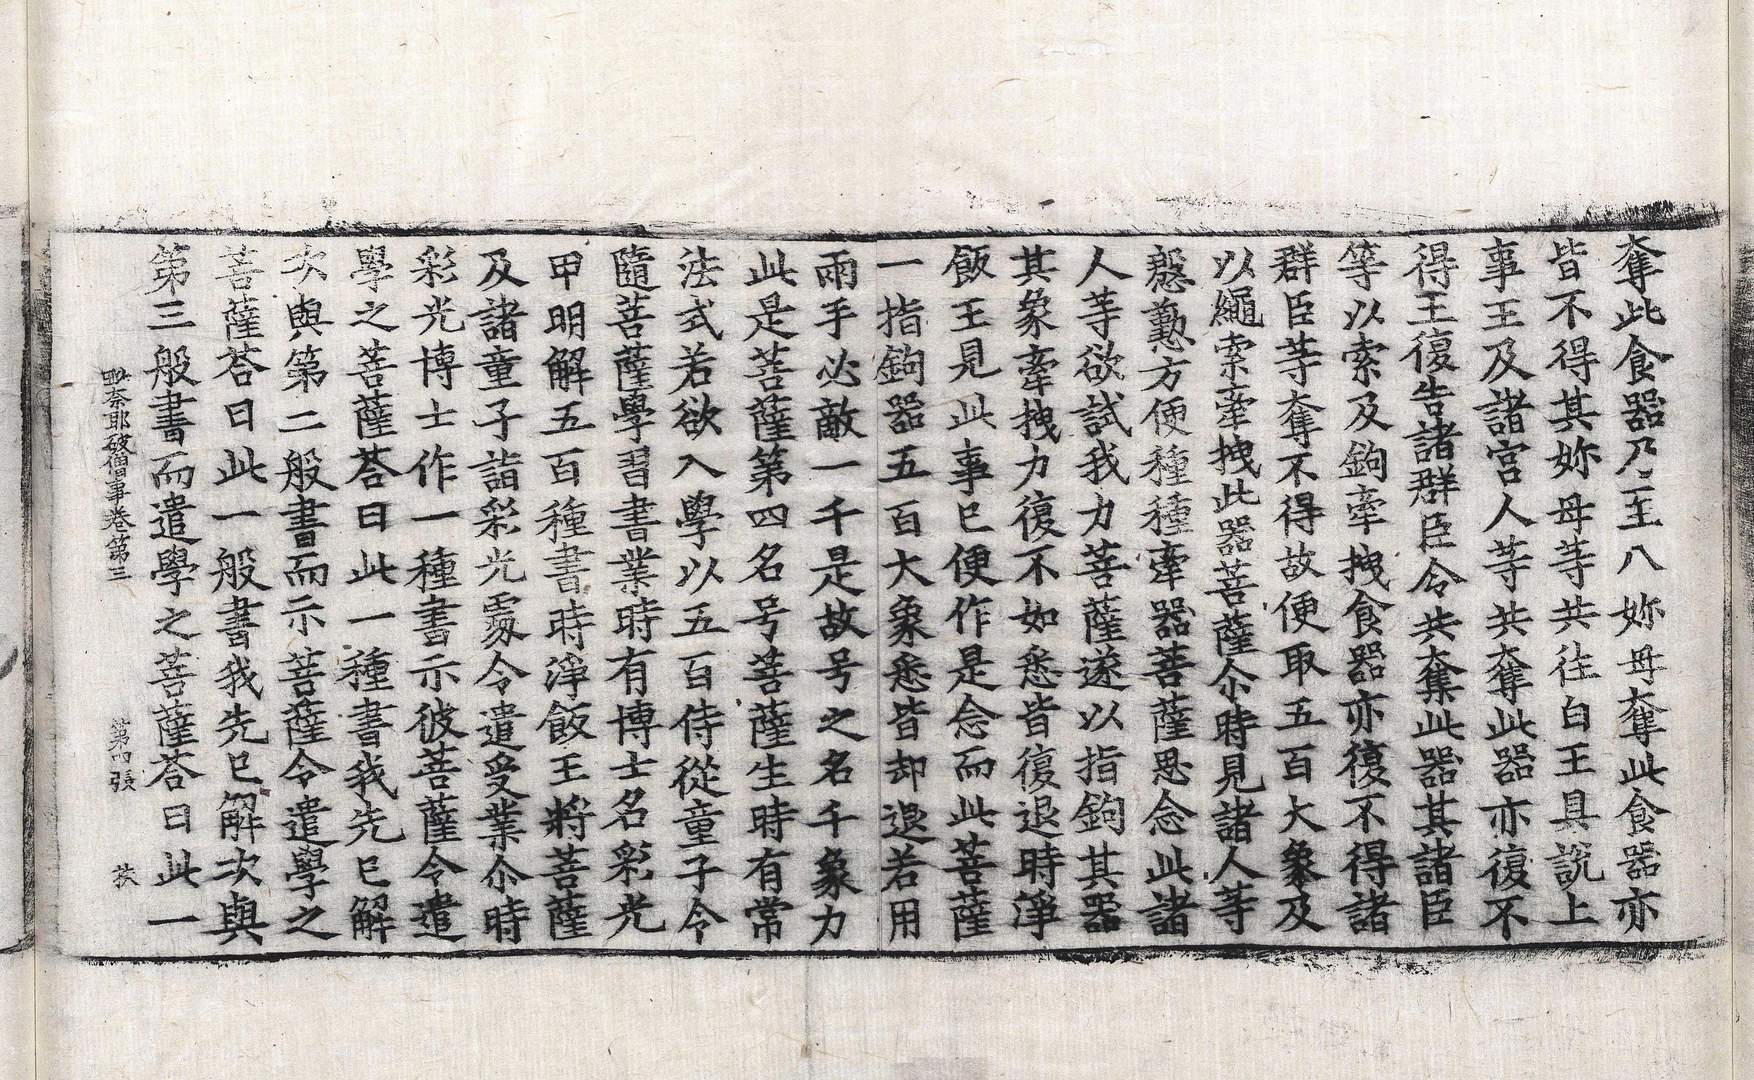 奪此食器乃至八妳母奪此食器亦
皆不得其妳母等共往白王具說上
事王及諸宮人等共奪此器亦復不
得王復告諸群臣令共奪此器其諸臣
等以索及鉤牽拽食器亦復不得諸
群臣等奪不得故便取五百大象及
以繩索牽拽此器菩薩尒時見諸人等
慇懃方便種種牽器菩薩思念此諸
人等欲試我力菩薩遂以指鉤其器
其象牽拽力復不如悉皆復退時淨
飯王見此事已便作是念而此菩薩
一指鉤器五百大象悉皆却退若用
兩手必敵一千是故号之名千象力
此是菩薩第四名号菩薩生時有常
法式若欲入學以五百侍從童子令
隨菩薩學習書業時有博士名彩光
甲明解五百種書時淨飯王將菩薩
及諸童子詣彩光處令遣受業尒時
彩光博士作一種書示彼菩薩令遣
學之菩薩荅曰此一種書我先已解
次與第二般書而示菩薩令遣學之
菩薩荅曰此一般書我先已解次與
第三般書而遣學之菩薩荅曰此一
毗奈耶破僧事卷第三 第四張